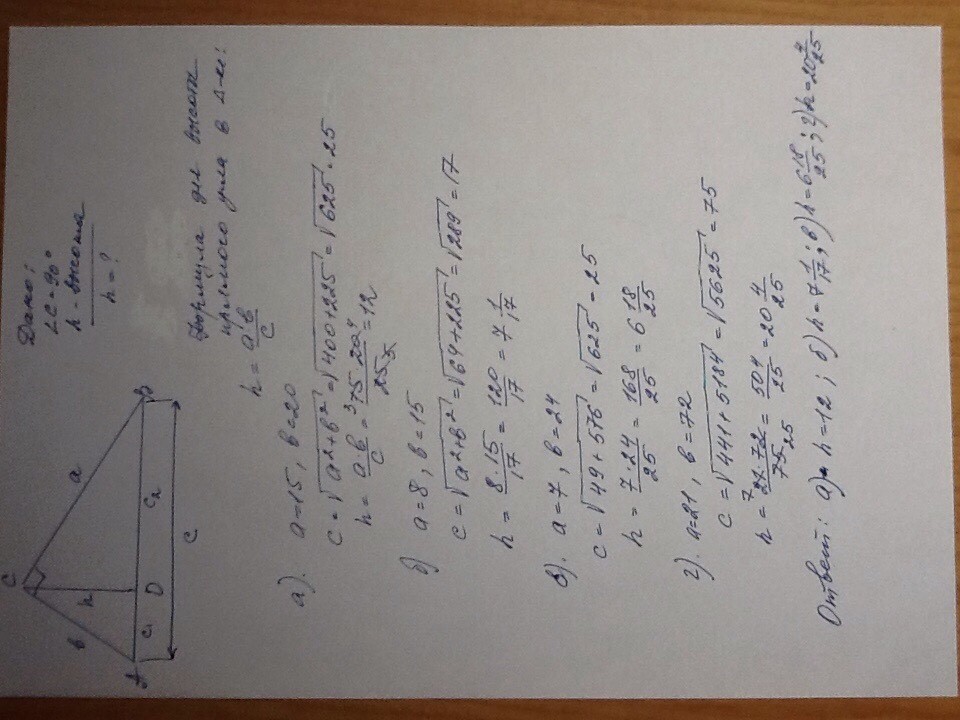 Дано:
∠C=90°
h - высота
h = ?
C
b
h
a
A
c₁
D
c₂
B
c
Формула для высоты
прямого угла в Δ-ке:
h = a·b/c
а). a=15, b=20
c=√(a²+b²)=√(400+225)=√625=25
h = a·b/c = 15·20/25 = 12
б) a=8, b=15
c=√(a²+b²)=√(64+225)=√289=17
h = 8·15/17 = 120/17 = 7 1/17
в). a=7, b=24
c=√(49+576)=√625=25
h = 7·24/25 = 168/25 = 6 18/25
г). a=21, b=72
c=√(441+5184)=√5625=75
h = 21·72/75 = 504/25 = 20 4/25
Ответ: а) h=12; б) h=7 1/17; в) h=6 18/25; г) h=20 4/25